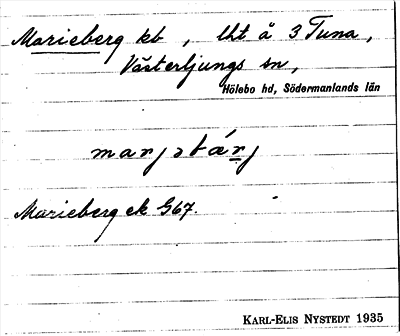 Marieberg kb , lht å 3 Tuna,
Västerljungs sn,
Hölebo hd, Södermanlands län
marjəbárj
Marieberg ek G67.
KARL-ELIS NYSTEDT 1935